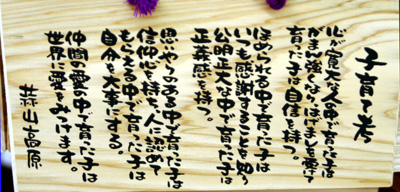 子育て考
心が寛大な人の中で育った子は
がまん強くなりはげましを受け
育った子は自信を持つ。
ほめられる中で育った子は
いつも感謝することを知り
公明正大な中で育った子は
正義感を持つ。
思いやりのある中で育った子は
信仰心を持ち、人に認めて
もらえる中で育った子は
自分を大事にする。
仲間の愛の中で育った子は
世界に愛をみつけます。
蒜山高原